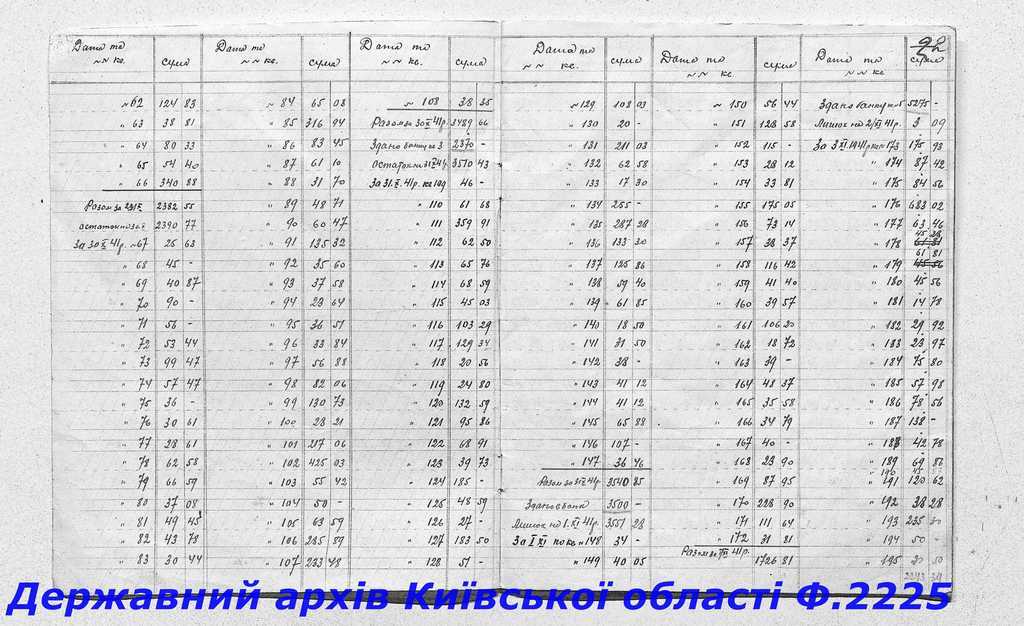 22
Дата та №№ кв. сума
№ 62 124 83
" 63 38 81
" 64 80 33
" 65 54 40
" 66 340 88
Разом за 29/X 2382 55
Остаток на 30/X 2390 77
За 30/X 41р. № 67 26 63
" 68 45 -
" 69 40 87
" 70 90 -
" 71 56 -
" 72 53 44
" 73 99 47
" 74 57 47
" 75 36 -
" 76 30 61
" 77 28 61
" 78 62 58
" 79 66 59
" 80 37 08
" 81 49 45
" 82 43 78
" 83 30 44
Дата та №№ кв. сума
№ 84 65 08
" 85 316 94
" 86 83 45
" 87 61 10
" 88 31 70
" 89 48 71
" 90 60 47
" 91 135 32
" 92 35 60
" 93 37 58
" 94 23 64
" 95 36 51
" 96 33 84
" 97 56 88
" 98 82 06
" 99 130 73
" 100 28 21
" 101 217 06
" 102 425 03
" 103 55 42
" 104 50 -
" 105 63 59
" 106 285 89
" 107 233 48
Дата та №№ кв. сума
№ 108 38 35
Разом за 30/X 41р. 3489 66
Здано 2370 -
Остаток на 31/X 41р. 3510 43
За 31.X.41р. кв 109 46 -
" 110 61 68
" 111 359 91
" 112 62 50
" 113 65 76
" 114 68 59
" 115 45 03
" 116 103 29
" 117 129 34
" 118 20 56
" 119 24 80
" 120 132 59
" 121 95 86
" 122 68 91
" 123 39 73
" 124 185 -
" 125 48 59
" 126 27 -
" 127 183 50
" 128 51 -
Дата та №№ кв. сума
№ 129 108 03
" 130 20 -
" 131 211 03
" 132 62 58
" 133 17 30
" 134 265 -
" 135 287 28
" 136 133 30
" 137 125 86
" 138 59 40
" 139 61 85
" 140 18 50
" 141 31 50
" 142 38 -
" 143 41 12
" 144 41 12
" 145 65 88
" 146 107 -
" 147 36 46
Разом за 31/X 41р 3540 85
Здано в банк 3500 -
Лишок на 1.XI 41р. 3551 28
За 1/XI по кв. № 148 34 -
" 149 40 05
Дата та №№ кв сума
№ 150 56 44
" 151 128 58
" 152 115 -
" 153 28 12
" 154 33 81
" 155 175 05
" 156 73 14
" 157 38 37
" 158 116 42
" 159 41 40
" 160 39 57
" 161 106 20
" 162 18 72
" 163 39 -
" 164 48 37
" 165 35 58
" 166 34 79
" 167 40 -
" 168 23 90
" 169 87 95
" 170 228 90
" 171 111 64
" 172 31 81
Разом за 1/XI 41р. 1726 81
Дата та №№ кв сума
Здано 5275 -
Лишок на 2/XI 41р. 3 09
За 3/XI 41р кв 173 175 93
" 174 87 42
" 175 84 56
" 176 683 02
" 177 63 46
" 178 45 28
61 81
" 179
" 180 45 56
" 181 14 78
" 182 29 92
" 183 23 97
" 184 75 80
" 185 57 98
" 186 78 56
" 187 138 -
" 188 42 78
" 189 69 86
" 190 45
" 191 120 62
" 192 38 28
" 193 235 30
" 194 50 -
" 195 30 50
Державний архів Київської області Ф.2225